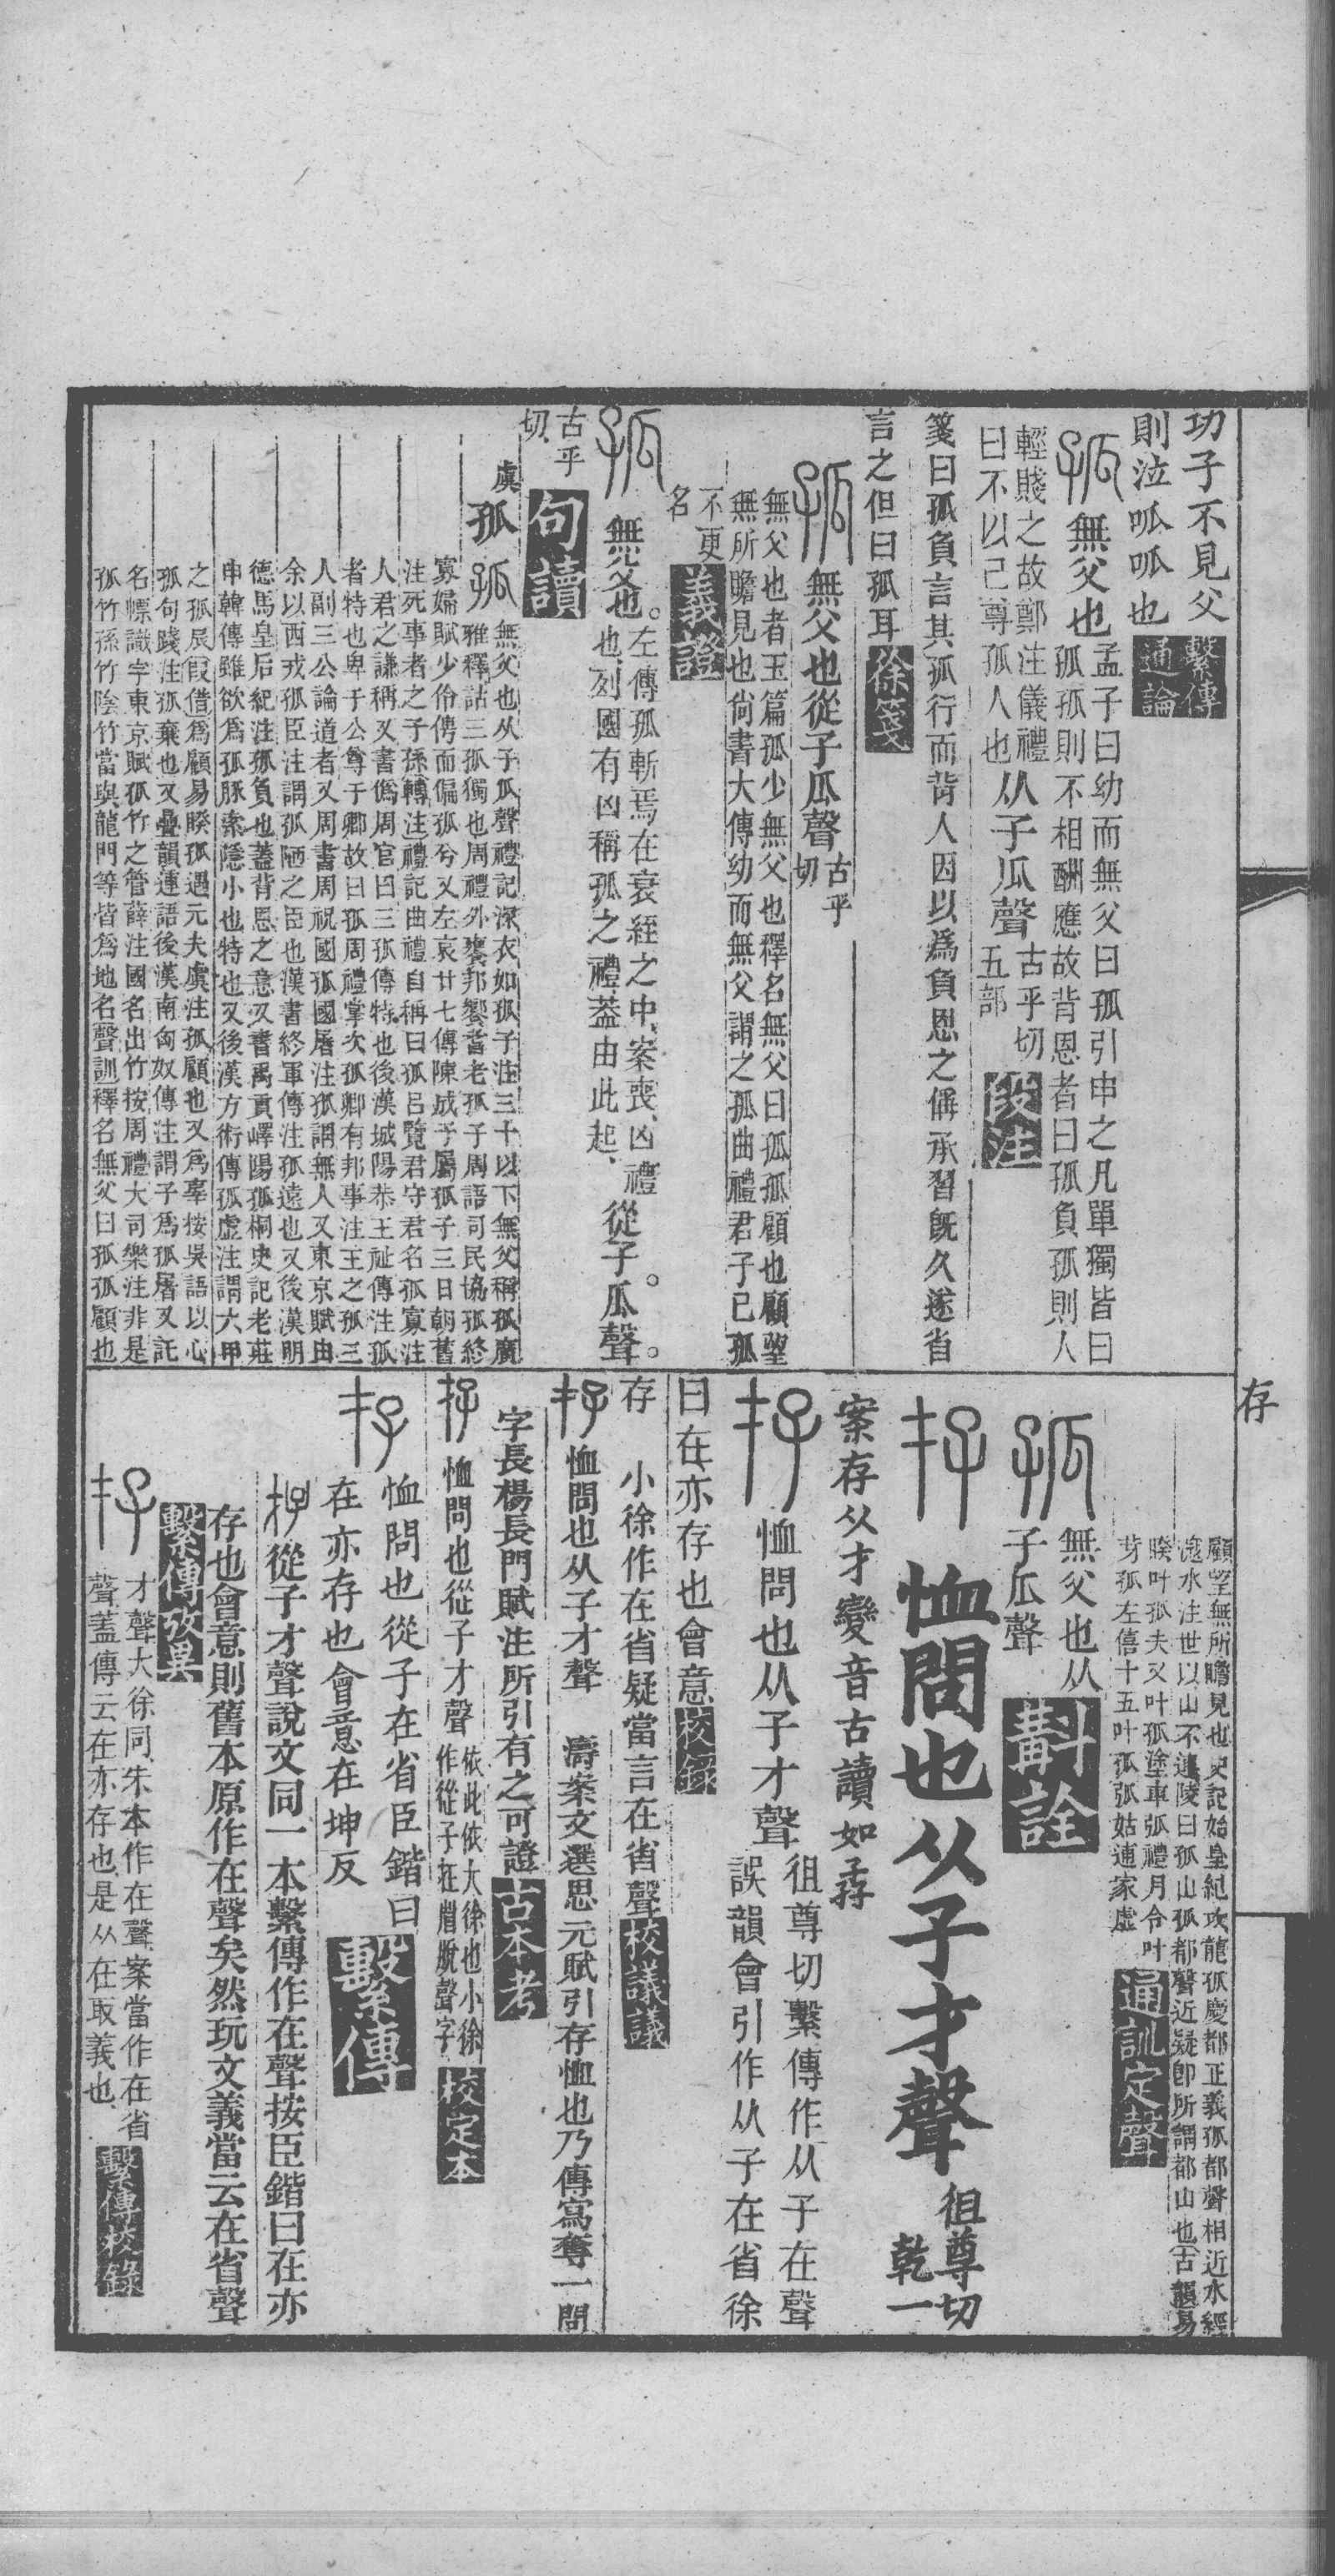 功子不見父
則泣呱呱也
繫傳
通論
無父也
孟子曰幼而無父曰孤引申之凡單獨皆曰
孤孤則不相酬應故背恩者曰孤負孤則人
輕賤之故鄭注儀禮
曰不以己尊孤人也
从子瓜聲
古乎切
五部
段注
箋曰孤負言其孤行而背人因以爲負恩之偁承習旣久遂省
言之但曰孤耳
徐箋
無父也從子瓜聲
古乎
切
無父也者玉篇孤少無父也釋名無父曰孤孤顧也顧望
無所瞻見也尙書大傳幼而無父謂之孤曲禮君子已孤
不更
名
義證
無父也。
左傳孤斬焉在衰絰之中、案喪、凶禮
也、列國有凶稱孤之禮、葢由此起、
從子。瓜聲。
古乎
切、
句讀
虞
孤
無父也从子瓜聲禮記深衣如孤子注三十以下無父稱孤廣
雅釋詁三孤獨也周禮外饔邦饗耆老孤子周語司民協孤終
寡婦賦少伶俜而偏孤兮又左哀廿七傳陳成子屬孤子三日朝舊
注死事者之子孫轉注禮記曲禮自稱曰孤呂覽君守君名孤寡注
人君之謙稱又書僞周官曰三孤傳特也後漢城陽恭王祉傳注孤
者特也卑于公尊于卿故曰孤周禮掌次孤卿有邦事注王之孤三
人副三公論道者又周書周祝國孤國屠注孤謂無人又東京賦由
余以西戎孤臣注謂孤陋之臣也漢書終軍傳注孤遠也又後漢明
德馬皇后紀注孤負也蓋背恩之意又書禹貢嶧陽孤桐史記老莊
申韓傳雖欲爲孤豚索隱小也特也又後漢方術傳孤虛注謂六甲
之孤辰叚借爲顧易睽孤遇元夫虞注孤顧也又爲辜按吳語以心
孤句踐注孤棄也又疊韻連語後漢南匈奴傳注謂子爲孤屠又託
名幖識字東京賦孤竹之管薛注國名出竹按周禮大司樂注非是
孤竹孫竹陰竹當與龍門等皆爲地名聲訓釋名無父曰孤孤顧也
存
顧望無所瞻見也史記始皇紀攻龍孤慶都正義孤都聲相近水經
滱水注世以山不連陵曰孤山孤都聲近疑卽所謂都山也古韻易
睽叶孤夫又叶孤塗車弧禮月令叶
芽孤左僖十五叶孤弧姑逋家虛
通訓定聲
無父也从
子瓜聲
斠詮
恤問也从子才聲
徂尊切
乾一
案存从才變音古讀如孖
恤問也从子才聲
徂尊切繫傳作从子在聲
誤韻會引作从子在省徐
曰在亦存也會意
校錄
存
小徐作在省疑當言在省聲
校議議
恤問也从子才聲
濤案文選思元賦引存恤也乃傳寫奪一問
字長楊長門賦注所引有之可證
古本考
恤問也從子才聲
依此依大徐也小徐
作從子在省脫聲字
校定本
恤問也從子在省臣鍇曰
在亦存也會意在坤反
繫傳
從子才聲說文同一本繫傳作在聲按臣鍇曰在亦
存也會意則舊本原作在聲矣然玩文義當云在省聲
繫傳攷異
才聲大徐同、朱本作在聲、案當作在省
聲、蓋傳云在亦存也、是从在取義也、
繫傳校錄